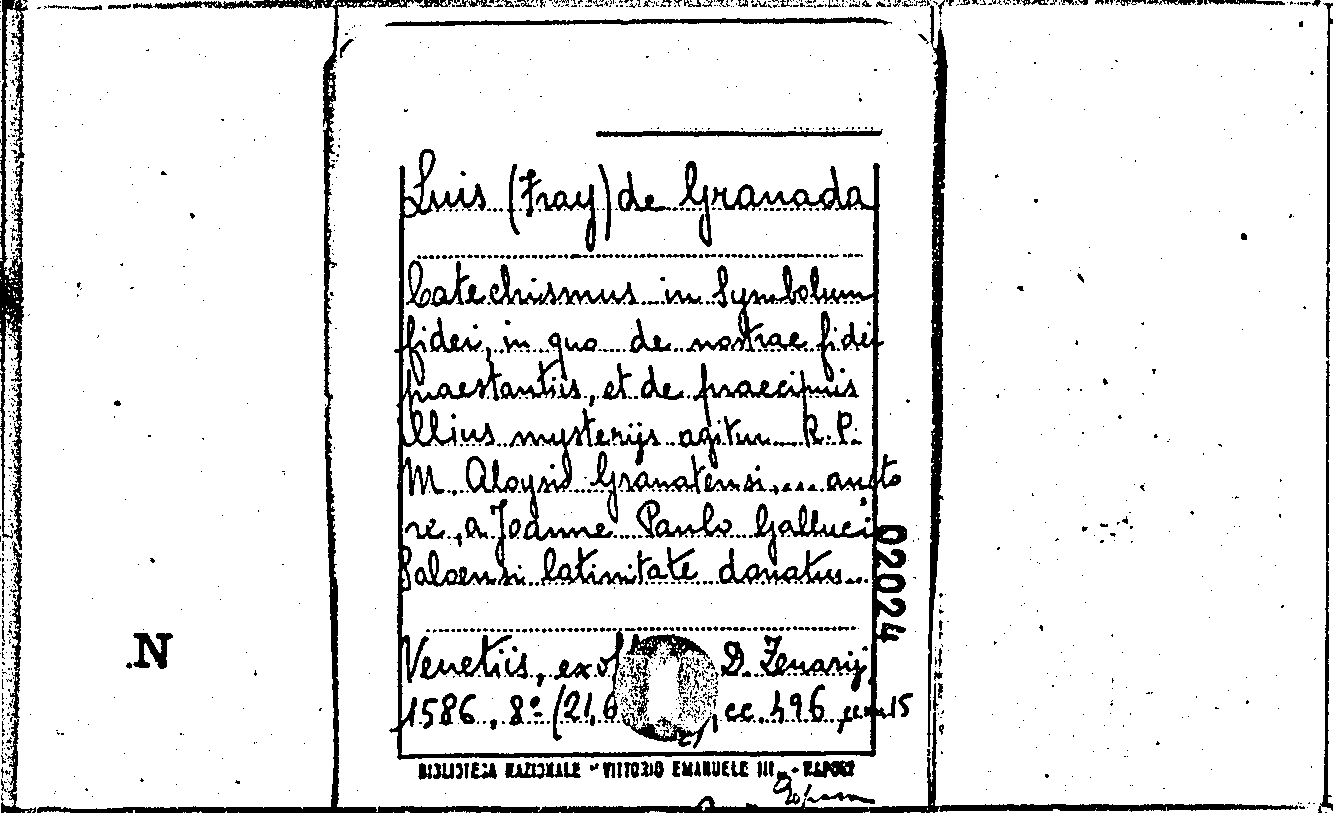 Luis (Fray) de Granada
Catechismus in Symbolum
fidei, in quo de nostrae fidei
praestantiis, et de praecipuis
illius mysterijs agitur R. P.
M. Aloysio Granatensi.... aucto
re, a Joanne Paulo Galluci
Saloensi latinitate donatus...
Venetiis, ex D. Zenarij,
1586, 8º (21,6 cc. 496, 15
BIBLIOTECA NAZIONALE - VITTORIO EMANUELE III - NAPOLI
02024
.N